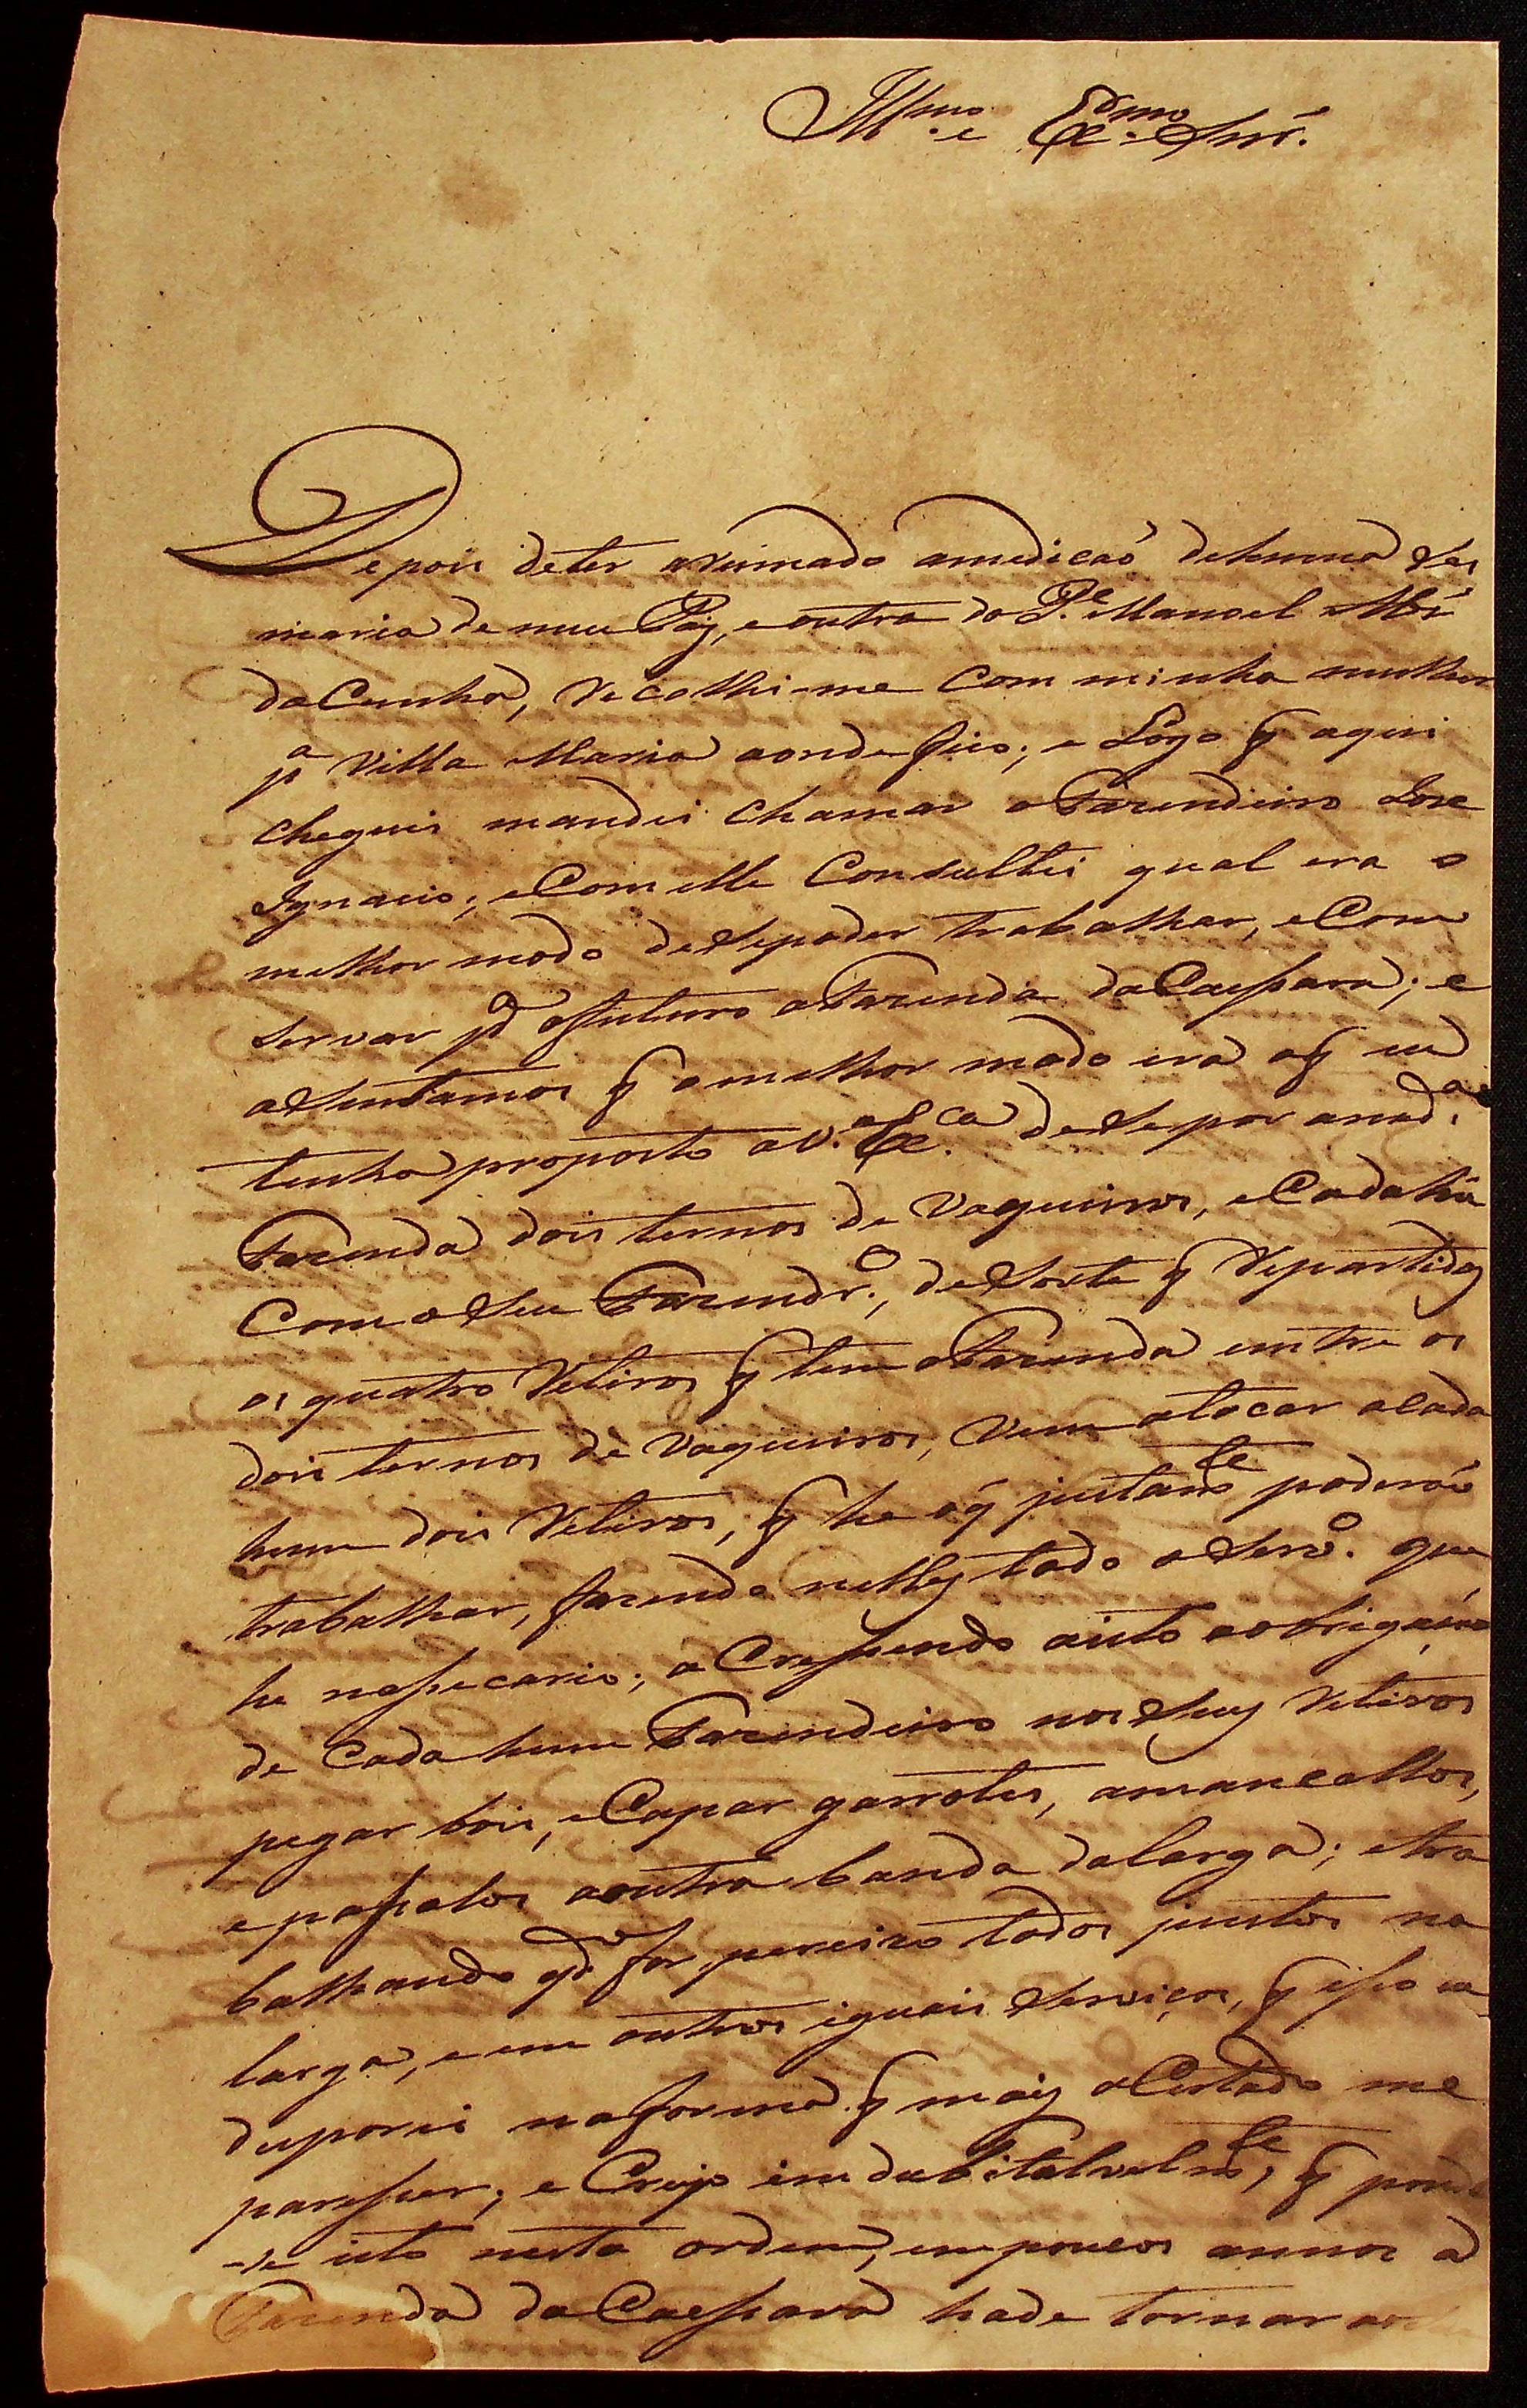 Illmo. e Exmo. Snr.
Depois deter arrimado amedicaó dehuma Ses
maria de meu Pay, e outra do Pe. Manoel Alz'
da Cunha, recolhi-me com minha mulher
pa Villa Maria aonde fico; e Logo q aqui
cheguei mandei chamar o Fazendeiro Joze
Ignacio; eCom elle Consultei qual era o
melhor modo deSepoder trabalhar, eCon
servar pa ofuturo aFazenda daCaessara; e
aSentamos q omelhor modo era oq eu
tenho proposto aV. Exca. deSepor na da.
Fazenda dois ternos de Vaqueiros, eCadahu
Com oSeu Fazendro., deSorte q repartidos
os quatro retiros q tem aFazenda entre os
dois ternos de Vaqueiros, vem atocar aCada
hum dois retiros, q he oq justamte poderaó
trabalhar, fazendo nelles todo oServo. que
he nessecario; aCressendo aisto aobrigaçaó
de Cada hum Fazendeiro nos Seus retiros
pegar bois, eCapar garrotes, amancallos,
epassalos aoutra banda dalarga; etra
balhando qdo for percizo todos juntos na
larga, e em outros iguais Serviços, q isso eu
disporei naforma q mais aCertado me
paresser; e Creyo indubitalvelmte, q pondo
-se isto nesta ordem, empoucos annos a
Fazenda daCaessara hade tornar